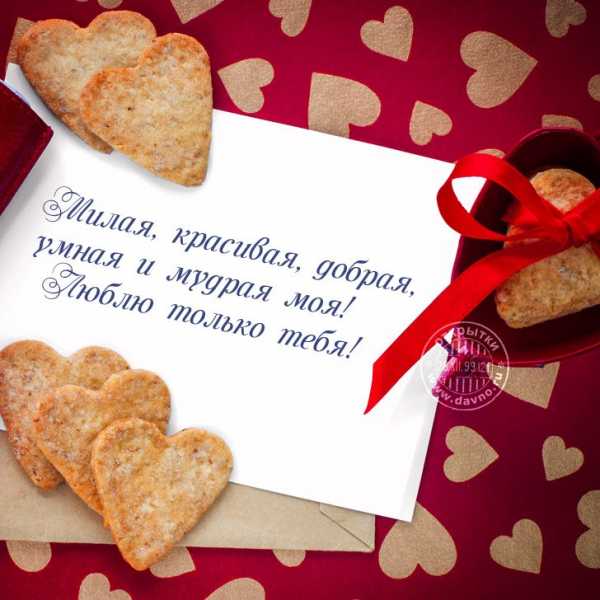 Милая, красивая, добрая,
умная и мудрая моя!
Люблю только тебя!
www.davno.ru